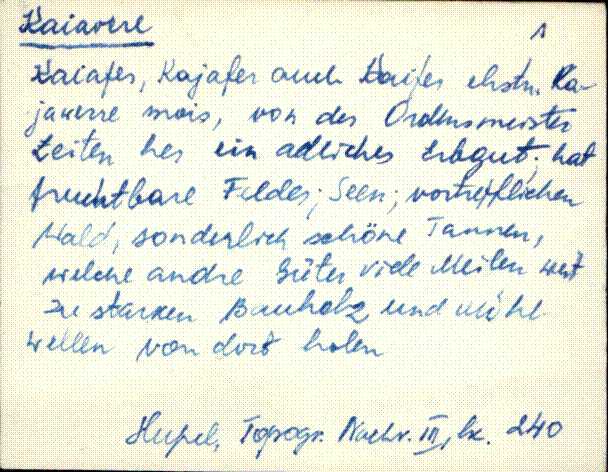 Kaiavere
1
Kaiafer, Kajafer auch Kaifer ehstn. Ka-
jawerre mois, von der Ordensmeister
Zeiten her ein adliches Erbgut; hat
fruchtbare Felder; Seen; vortreflichen
Wald, sonderlich schöne Tannen,
welche andre Güter viele Meilen weit
zu starken Bauholz und Mühl-
wellen von dort holen
Hupel, Topogr. Nachr. III, lk. 240